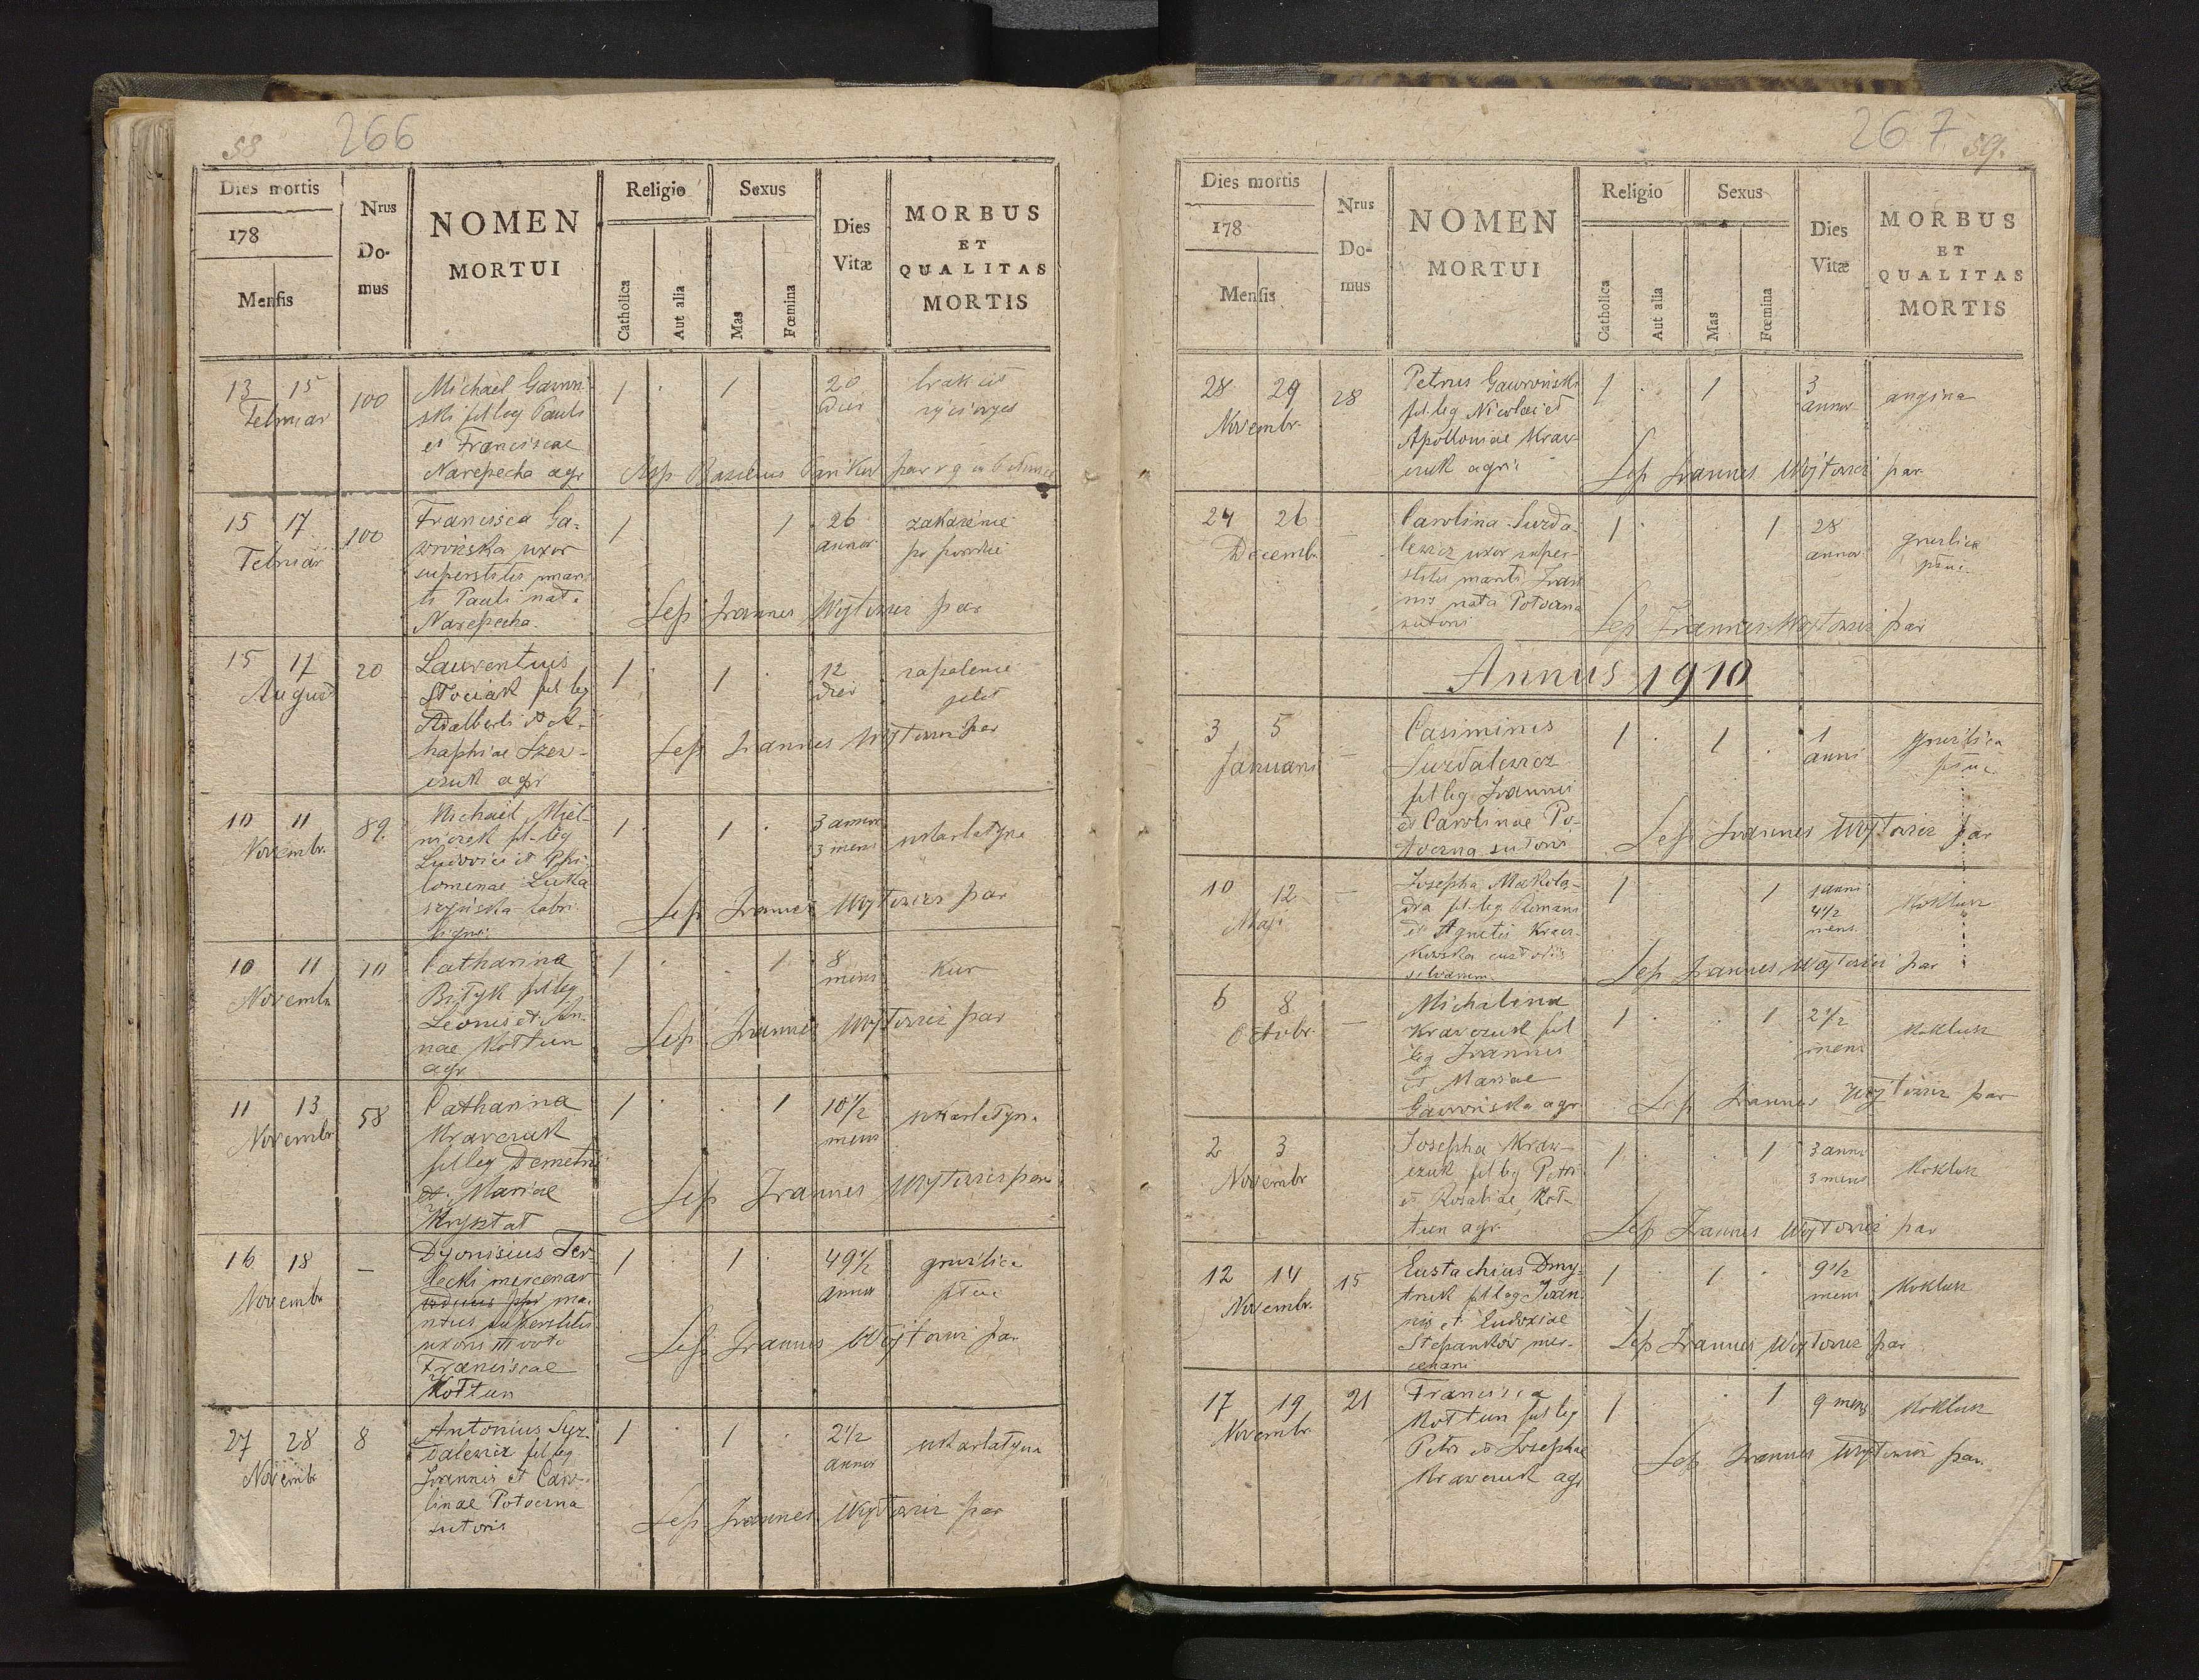 58 266
Dies mortis
178
Mensis
Nrus
Do-
mus
NOMEN
MORTUI
Religio
Catholica
Aut alia
Sexus
Mas
Fœmina
Dies
Vitæ
MORBUS
ET
QUALITAS
MORTIS
13 15
Februar
100
Michael Gawroń
ski fil leg Pauli
et Franciscae
Narepecha agr
1 1
20
dier
brak sił
życiowych
Sep Basilius par
15 17
Februar
100
Francisca Ga-
wrońska uxor
superstitis mari
ti Pauli nat.
Narepecha
1 1
26
annor
zakażenie
po porodzie
Sep Joannes Wojtowicz par
15 17
August
20
Laurentius
Stociak fil leg
Adalberti et A-
haphiae Szew-
czuk agr
1 1
12
dier
zapalenie
jelit
Sep Joannes Wojtowicz par
10 11
Novembr.
89.
Michael Miel-
niczek fil leg
Ludovici et Phi-
lomenae Luka
szyńska fabri
ligni
1 1
3 annor
3 mens
szkarlatyna
Sep Joannes Wojtowicz par
10 11
Novembr
10
Catharina
Bityk fil leg
Leonis et An-
nae Kottun
agr
1 1
8
mens
Kur
Sep Joannes Wojtowicz par
11 13
Novembr
58
Catharina
Krawczuk
fil leg Demetrii
et Mariae
Krysztat
1 1
10 1/2
mens
szkarlatyna
Sep Joannes Wojtowicz par
16 18
Novembr
–
Dyonisius Ter-
lecki mercenar
ma-
ritus superstitis
uxoris III voto
Franciscae
Kottun
1 1
49 1/2
annor
gruźlica
płuc
Sep Joannes Wojtowicz par
27 28
Novembr
8
Antonius Suz-
dalewicz fil leg
Joannis et Caro-
linae Potoczna
sutoris
1 1
2 1/2
annor
szkarlatyna
Sep Joannes Wojtowicz par
267 59.
Dies mortis
178
Mensis
Nrus
Do-
mus
NOMEN
MORTUI
Religio
Catholica
Aut alia
Sexus
Mas
Fœmina
Dies
Vitæ
MORBUS
ET
QUALITAS
MORTIS
28 29
Novembr.
28
Petrus Gawroński
fil leg Nicolai et
Apolloniae Kraw-
czuk agric
1 1
3
annor
angina
Sep Joannes Wojtowicz par
24 26
Decemb.
–
Carolina Suzda-
lewicz uxor super-
stitis mariti Joan
nis nata Potoczna
sutoris
1 1
28
annor
gruźlica
płuc
Sep Joannes Wojtowicz par
Annus 1910
3 5
Januarii
–
Casimirus
Suzdalewicz
fil leg Joannis
et Carolinae Po-
toczna sutoris
1 1
1
anni
gruźlica
płuc
Sep Joannes Wojtowicz par
10 12
Maji
–
Josepha Makolo-
dra fil leg Romani
et Agnetis Kraw-
kowska custodis
silvarum
1 1
1 anni
4 1/2
mens.
Koklusz
Sep Joannes Wojtowicz par
6 8
Octobr.
–
Michalina
Krawczuk fil
leg Joannis
et Mariae
Gawrońska agr
1 1
2 1/2
mens
Koklusz
Sep Joannes Wojtowicz par
2 3
Novembr
Josepha Kraw-
czuk fil leg Petri
et Rosaliae Kot-
tun agr.
1 1
3 anno
3 mens
Koklusz
Sep Joannes Wojtowicz par
12 14
Novembr.
15
Eustachius Dmy-
truk fil leg Joan
nis et Eudoxiae
Stepanków mer-
cenarii
1 1
9 1/2
mens
Koklusz
Sep Joannes Wojtowicz par
17 19
Novembr
21
Francisca
Kottun fil leg
Petri et Josephae
Krawczuk agr
1 1
9 mens
Koklusz
Sep Joannes Wojtowicz par.